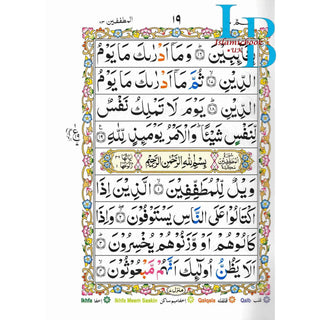 المطففين ٨٣
١٩
عم ٣٠
بِغَآئِبِيْنَ ۞ وَمَاۤ اَدْرٰىكَ مَا يَوْمُ
الدِّيْنِ ۞ ثُمَّ مَاۤ اَدْرٰىكَ مَا يَوْمُ
الدِّيْنِ ۞ يَوْمَ لَا تَمْلِكُ نَفْسٌ
لِّنَفْسٍ شَيْـًٔا ؕ وَالْاَمْرُ يَوْمَىِٕذٍ لِّلّٰهِ ۞
بِسْمِ اللّٰهِ الرَّحْمٰنِ الرَّحِيْمِ
وَيْلٌ لِّلْمُطَفِّفِيْنَ ۞ الَّذِيْنَ اِذَا
اكْتَالُوْا عَلَى النَّاسِ يَسْتَوْفُوْنَ ۞ وَاِذَا
كَالُوْهُمْ اَوْ وَّزَنُوْهُمْ يُخْسِرُوْنَ ۞
اَلَا يَظُنُّ اُولٰٓىِٕكَ اَنَّهُمْ مَّبْعُوْثُوْنَ ۞
Ikhfa اخفا Ikhfa Meem Saakin اخفا میم ساکن Qalqala قلقلہ Qalb قلب